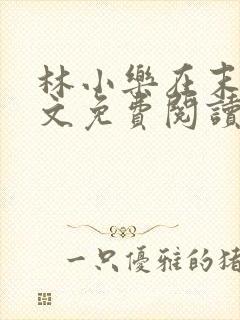 林小樂在末
文免費閱讀
一只優雅的猪